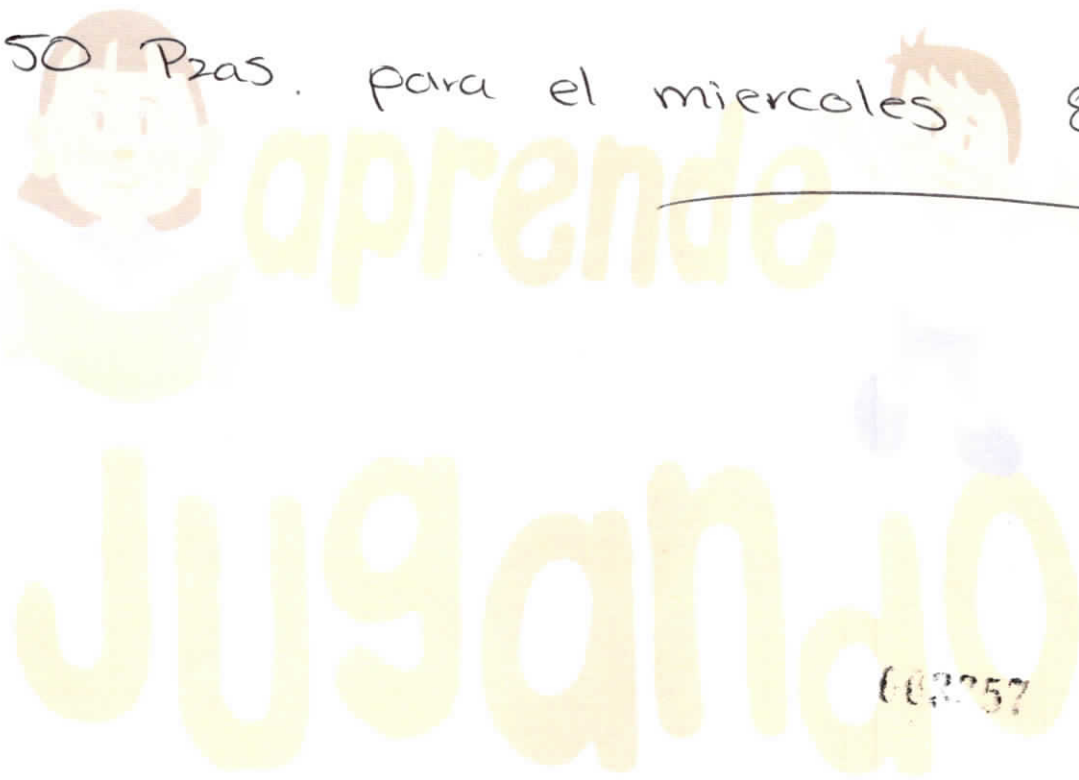 50 Pzas. para el miercoles 8
aprende
Jugando